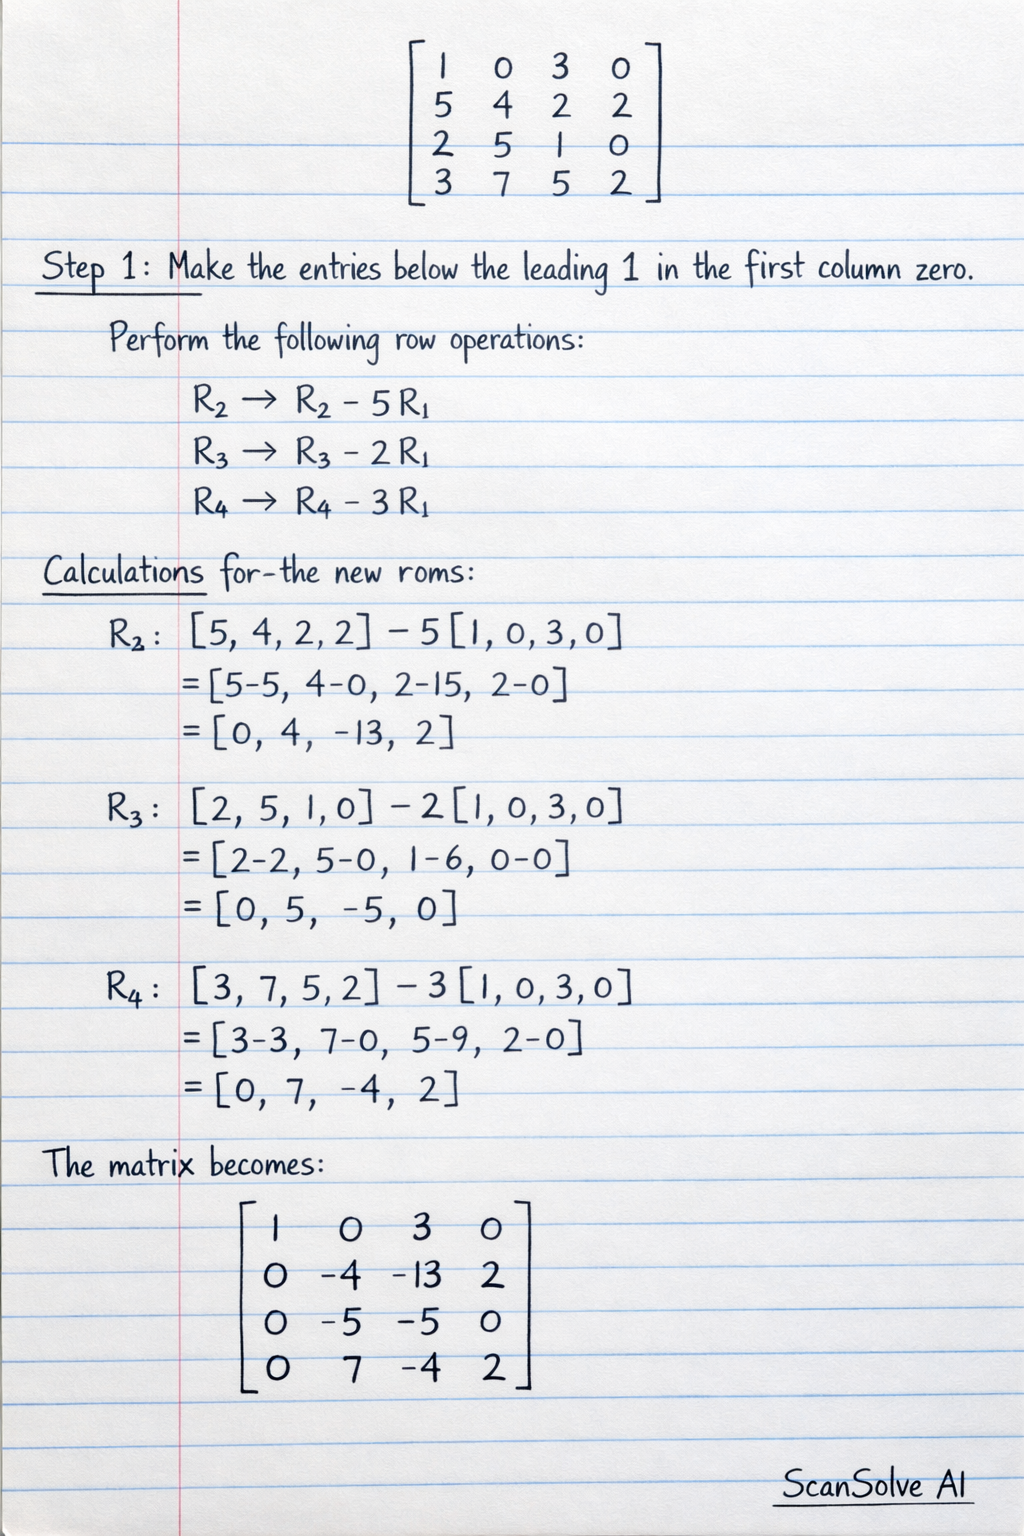 1 0 3 0
5 4 2 2
2 5 1 0
3 7 5 2
Step 1: Make the entries below the leading 1 in the first column zero.
Perform the following row operations:
R₂ → R₂ - 5R₁
R₃ → R₃ - 2R₁
R₄ → R₄ - 3R₁
Calculations for-the new roms:
R₂: [5, 4, 2, 2] - 5[1, 0, 3, 0]
= [5-5, 4-0, 2-15, 2-0]
= [0, 4, -13, 2]
R₃: [2, 5, 1, 0] - 2[1, 0, 3, 0]
= [2-2, 5-0, 1-6, 0-0]
= [0, 5, -5, 0]
R₄: [3, 7, 5, 2] - 3[1, 0, 3, 0]
= [3-3, 7-0, 5-9, 2-0]
= [0, 7, -4, 2]
The matrix becomes:
1 0 3 0
0 -4 -13 2
0 -5 -5 0
0 7 -4 2
ScanSolve AI